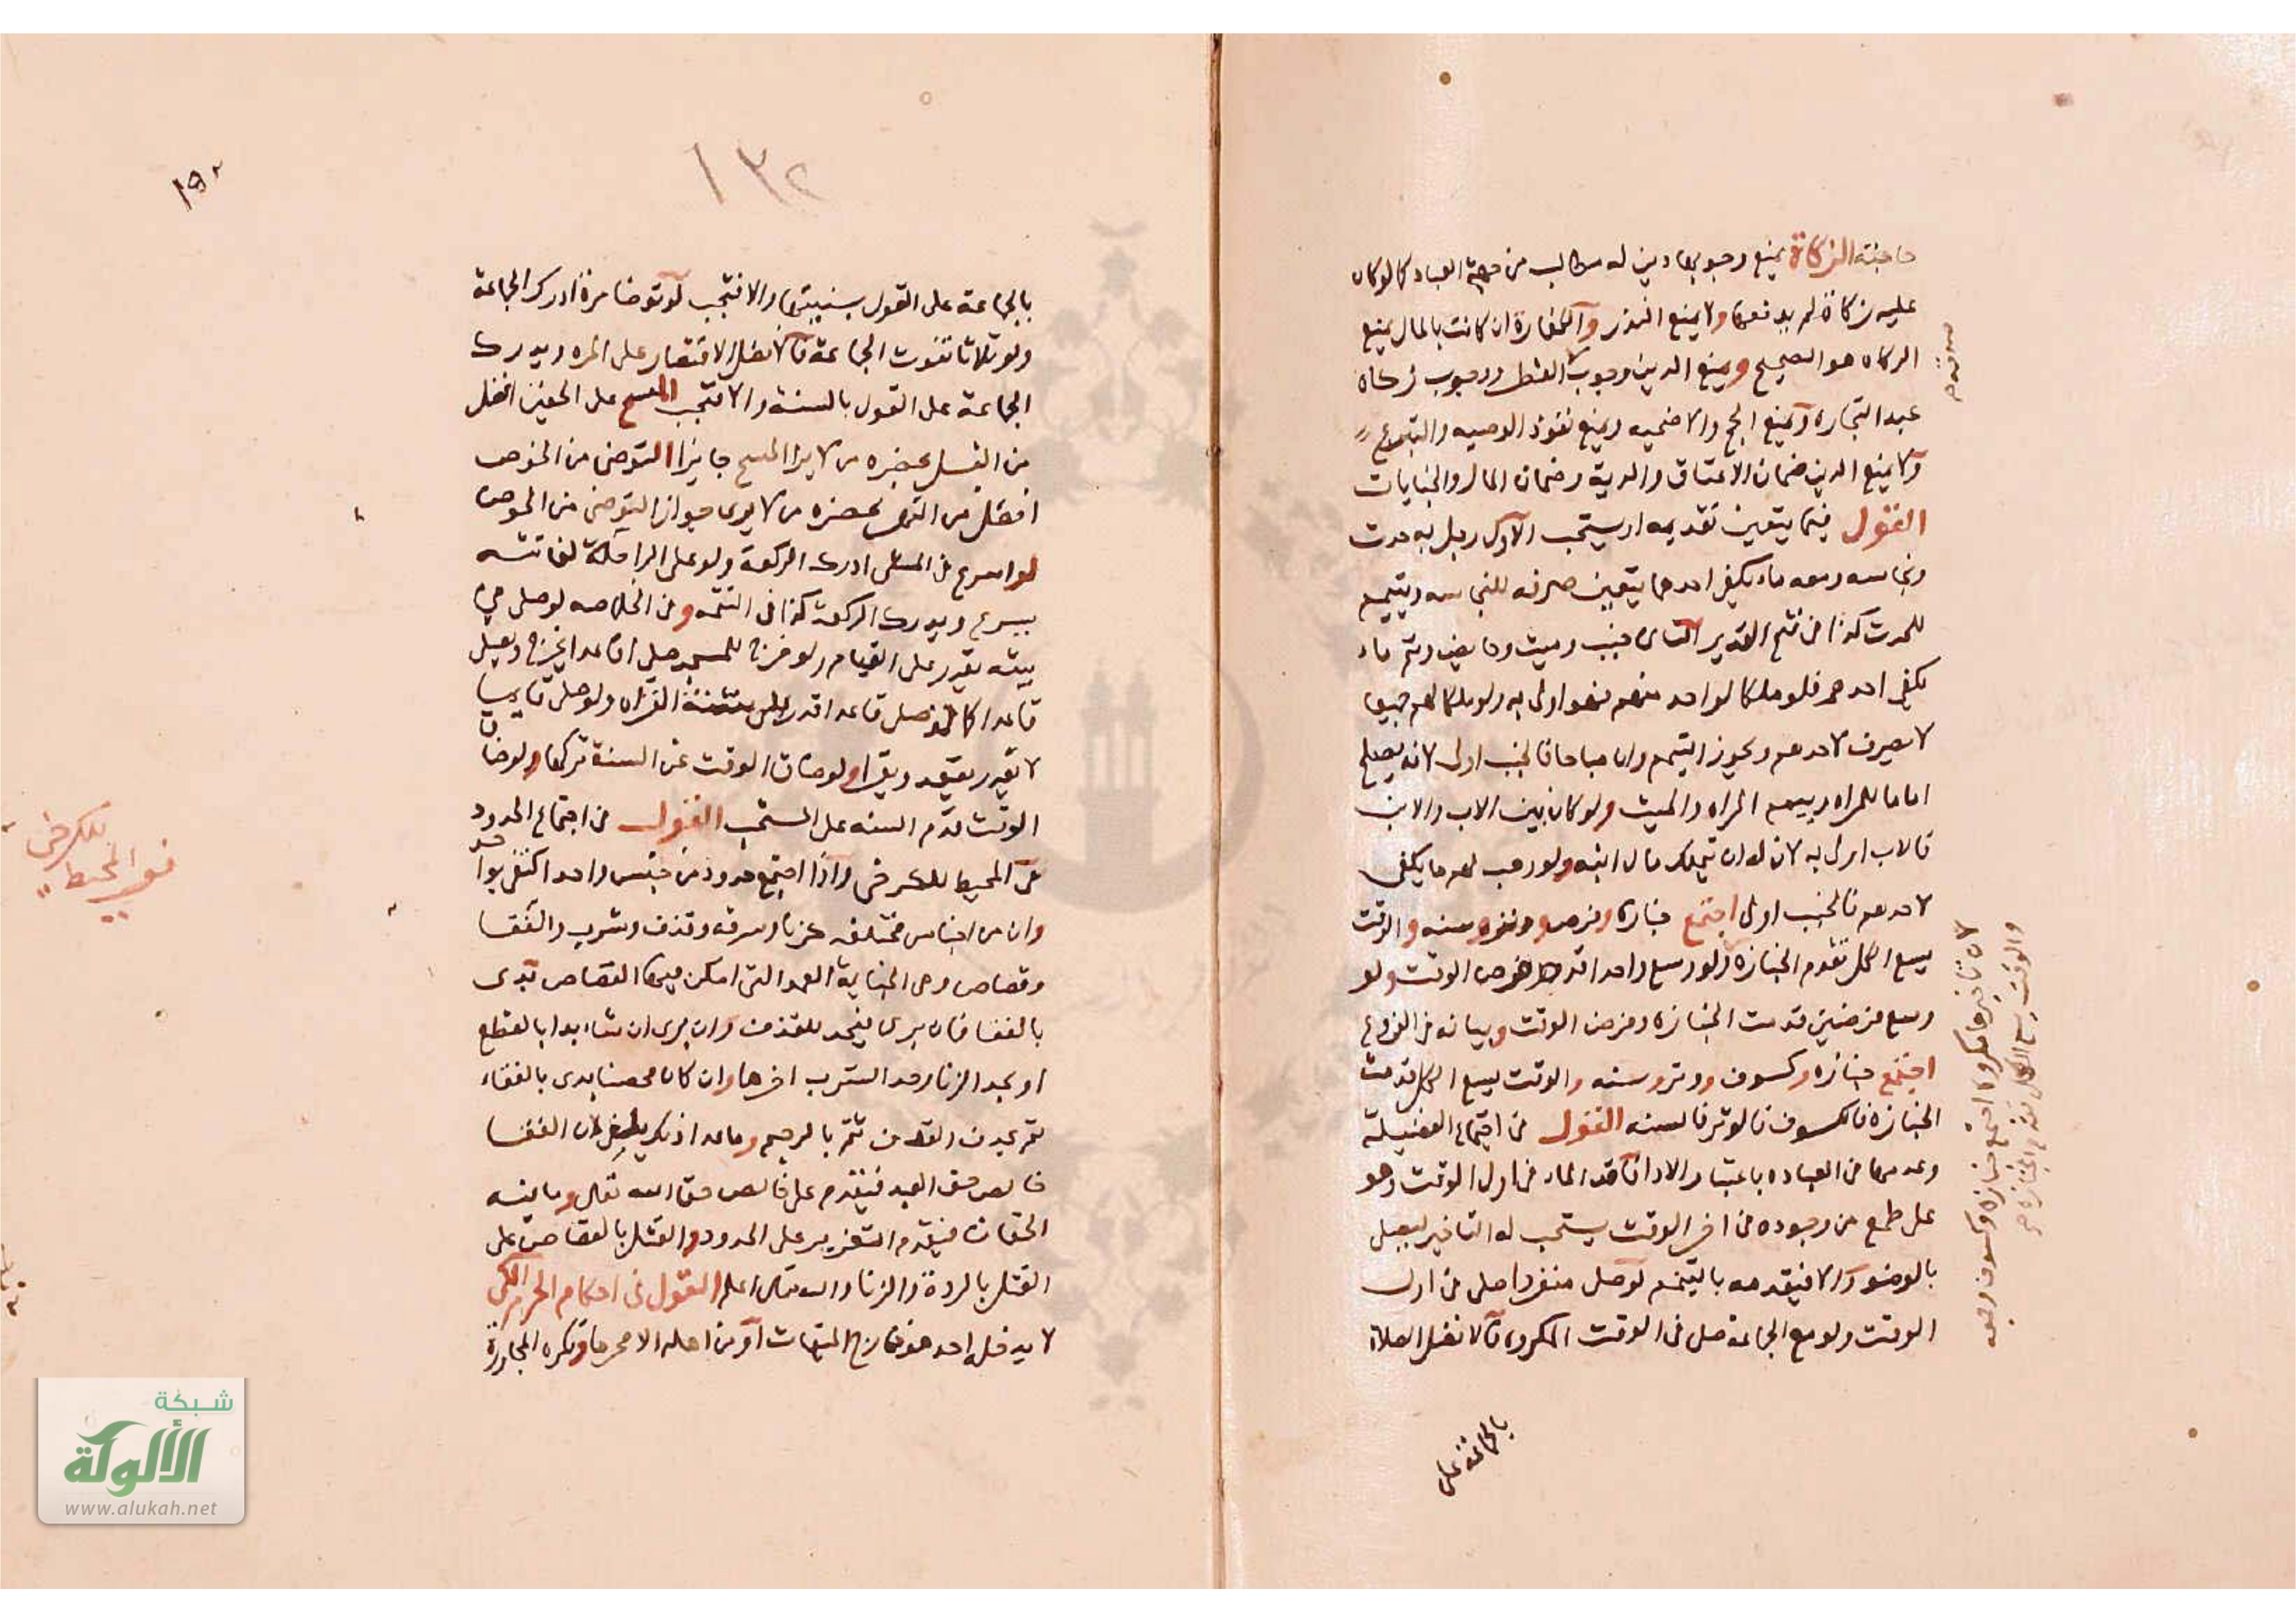 حاجته الزكاة يمنع وجوبها دين له مطالب من جهة العباد كما لو كان
عليه زكاة لم يدفعها ولا يمنع النذر والكفارة ان كانت بالمال يمنع
الزكاه هو الصحيح ويمنع الدين وجوب الفطر ووجوب زكاة
صدقة
عبد التجاره ويمنع الحج والاضحيه ويمنع نفوذ الوصيه والتبرع
ولا يمنع الدين ضمان الاعتاق والدية وضمان المال والجنايات
القول فيما يتعين تقديمه او يستحب الاول رجل به حدث
ونجاسه ومعه ماء يكفي احدهما يتعين صرفه للنجاسه ويتيمم
للحدث كذا في فتح القدير الثاني جنب وميت وحايض وثم ماء
يكفي احدهم فلو ملكا لواحد منهم فهو اولى به ولو ملكا لهم جميعا
لا يصرف لاحدهم ويجوز التيمم وان مباحا فالجنب اولى لانه يصلح
اماما للمراه وييمم المراه والميت ولو كان بين الاب والابن
فالاب اولى به لان له ان يتملك مال ابنه ولو وهب لهم ما يكفي
لاحدهم فالجنب اولى اجتمع جنازه وفرض ووتر وسنه والوقت
يسع الكل تقدم الجنازه ولو وسع واحدا قدم فرض الوقت ولو
وسع فرضين قدمت الجنازه وفرض الوقت وبيانه في الفروع
اجتمع جنازه وكسوف ووتر وسنه والوقت يسع الكل قدمت
الجنازه فالكسوف فالوتر فالسنه القول في اجتماع الفضيلة
وعدمها في العباده باعتبار الادا فاقد الماء في اول الوقت وهو
على طمع من وجوده في اخر الوقت يستحب له التاخير ليصلي
بالوضو والا فيقدمه بالتيمم لو صلى منفردا صلى في اول
الوقت ولو مع الجماعة صلى في الوقت المكروه فالافضل الصلاة
لان تاخيرها مكروه اجتمع جنازه وكسوف وجمعه
والوقت يسع الكل تقدم الجنازه
بالجماعة على
١٣٢
١٥٢
بالجماعة على القول بسنيتها والا فتجب لو توضا مرة ادرك الجماعة
ولو ثلاثا تفوت الجماعة فالافضل الاقتصار على المره ويدرك
الجماعة على القول بالسنة والا فتجب المسح على الخفين افضل
من الغسل بحضره من لا يرا المسح جايزا التوضي من الحوض
افضل من النهر بحضره من لا يرى جواز التوضي من الحوض
لو اسرع في المشى ادرك الركعة ولو على الراحلة لفاتته
يسرع ويدرك الركعة كذا في التتمه وفي الخلاصه لو صلى في
بيته يقدر على القيام ولو خرج للمسجد صلى قاعدا يخرج ويصلي
قاعدا كما لو صلى قاعدا قدر على سنة القراه ولو صلى قايما
لا يقدر يقعد ويقرا ولو ضاق الوقت عن السنة تركها ولو ضاق
الوقت قدم السنه على المستحب القول في اجتماع الحدود
في المحيط للكرخي واذا اجتمع حدود من جنس واحد اكتفي بواحد
وان من اجناس مختلفه كزنا وسرقه وقذف وشرب والفقا
وقصاص وهي الجناية العمد التي امكن فيها القصاص بدى
بالفقا فان برى فيحد للقذف وان برى ان شاء بدا بالقطع
او بحد الزنا وحد الشرب اخرها وان كان محصنا بدى بالفقاء
ثم بحد القذف ثم بالرجم وما عدا ذلك يلغى لان الفقا
خالص حق العبد فيقدم على خالص حق الله تعالى وما فيه
الحقان فيقدم التعزير على الحدود والقتل بالقصاص على
القتل بالردة والزنا والله تعالى اعلم القول في احكام الحرم المكي
لا يدخله احد هو خارج الميقات او من اهله الا محرما وتكره المجاورة
للكرخي
المحيط
شبكة
الألوكة
www.alukah.net